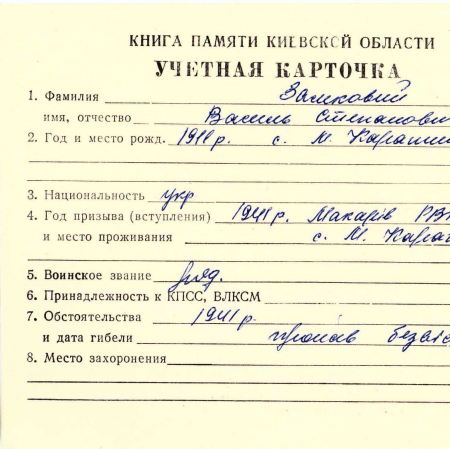 КНИГА ПАМЯТИ КИЕВСКОЙ ОБЛАСТИ
УЧЕТНАЯ КАРТОЧКА
1. Фамилия Замковий
имя, отчество Василь Степанович
2. Год и место рожд. 1911 р. с. М. Карашин
3. Национальность укр
4. Год призыва (вступления) 1941 р. Макарів РВ
и место проживания с. М. Караш
5. Воинское звание ряд.
6. Принадлежность к КПСС, ВЛКСМ
7. Обстоятельства 1941 р.
и дата гибели пропав безвіс
8. Место захоронения